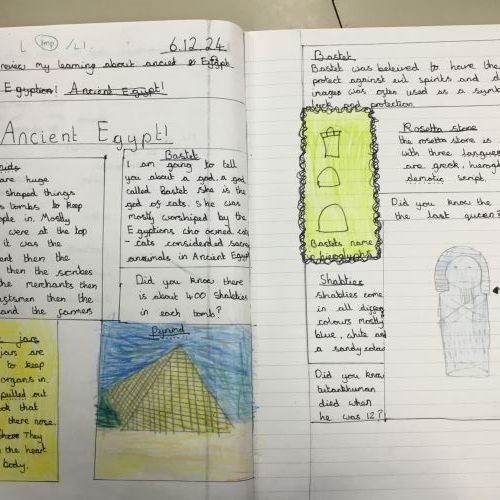 L Imp /L1.
6.12.24
review my learning about anciet Egypt
Egyption! Ancient Egypt!
Ancient Egypt!
are huge
shaped things
as tombs to keep
people in. Mostly
were at the top
it was the
then the
then the scribes
the merchants then
then the
and the farmers
Bastet
I am going to tell
you about a god, a god
called Bastet she is the
god of cats. She was
mostly worshiped by the
Egyptions who owned cats
- cats considered sacred
animals in Ancient Egypt
Did you know there
is about 400 shabties
in each tomb?
jars
jars are
to keep
organs in.
pulled out
that
there nose.
They
the heart
body.
Pyrimid
Bastet
Bastet was beleived to have the
protect against evil spirits and d
images was often used as a symb
luck and protection
Bastets name
in hieroglyphs
Rosetta stone
the rosetta stone is
with three languages
are greek, hierogl
demotic script.
Did you know the
the last queen?
Shabties
shabties come
in all
colours mostly
blue, white and
a sandy colour
Did you know
tutankhuman
died when
he was 12?